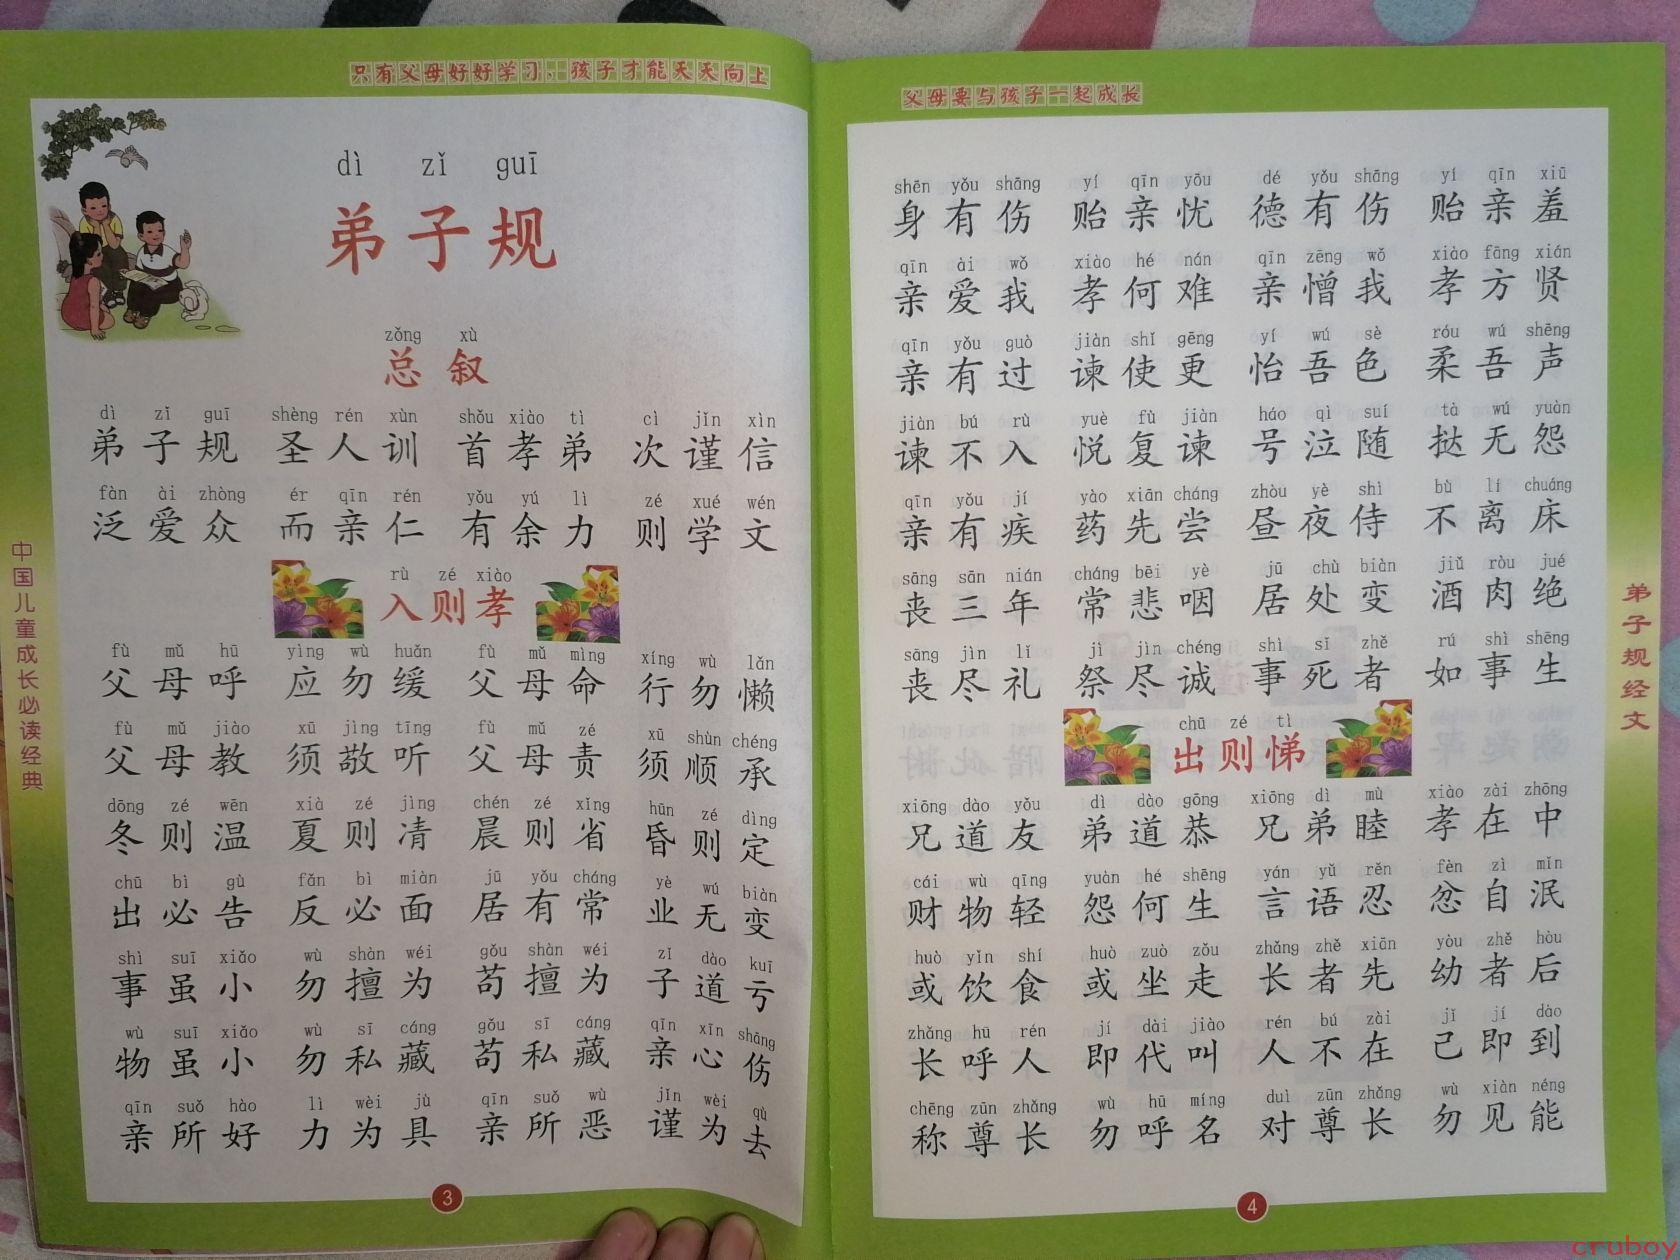 只有父母好好学习、孩子才能天天向上
dì zǐ guī
弟子规
zǒng xù
总叙
dì zǐ guī shèng rén xùn shǒu xiào tì cì jǐn xìn
弟子规 圣人训 首孝弟 次谨信
fàn ài zhòng ér qīn rén yǒu yú lì zé xué wén
泛爱众 而亲仁 有余力 则学文
rù zé xiào
入则孝
fù mǔ hū yìng wù huǎn fù mǔ mìng xíng wù lǎn
父母呼 应勿缓 父母命 行勿懒
fù mǔ jiào xū jìng tīng fù mǔ zé xū shùn chéng
父母教 须敬听 父母责 须顺承
dōng zé wēn xià zé jìng chén zé xǐng hūn zé dìng
冬则温 夏则凊 晨则省 昏则定
chū bì gù fǎn bì miàn jū yǒu cháng yè wú biàn
出必告 反必面 居有常 业无变
shì suī xiǎo wù shàn wéi gǒu shàn wéi zǐ dào kuī
事虽小 勿擅为 苟擅为 子道亏
wù suī xiǎo wù sī cáng gǒu sī cáng qīn xīn shāng
物虽小 勿私藏 苟私藏 亲心伤
qīn suǒ hào lì wèi jù qīn suǒ wù jǐn wèi qù
亲所好 力为具 亲所恶 谨为去
中国儿童成长必读经典
3
父母要与孩子一起成长
shēn yǒu shāng yí qīn yōu dé yǒu shāng yí qīn xiū
身有伤 贻亲忧 德有伤 贻亲羞
qīn ài wǒ xiào hé nán qīn zēng wǒ xiào fāng xián
亲爱我 孝何难 亲憎我 孝方贤
qīn yǒu guò jiàn shǐ gēng yí wú sè róu wú shēng
亲有过 谏使更 怡吾色 柔吾声
jiàn bú rù yuè fù jiàn háo qì suí tà wú yuàn
谏不入 悦复谏 号泣随 挞无怨
qīn yǒu jí yào xiān cháng zhòu yè shì bù lí chuáng
亲有疾 药先尝 昼夜侍 不离床
sāng sān nián cháng bēi yè jū chù biàn jiǔ ròu jué
丧三年 常悲咽 居处变 酒肉绝
sāng jìn lǐ jì jìn chéng shì sǐ zhě rú shì shēng
丧尽礼 祭尽诚 事死者 如事生
chū zé tì
出则悌
xiōng dào yǒu dì dào gōng xiōng dì mù xiào zài zhōng
兄道友 弟道恭 兄弟睦 孝在中
cái wù qīng yuàn hé shēng yán yǔ rěn fèn zì mǐn
财物轻 怨何生 言语忍 忿自泯
huò yǐn shí huò zuò zǒu zhǎng zhě xiān yòu zhě hòu
或饮食 或坐走 长者先 幼者后
zhǎng hū rén jí dài jiào rén bú zài jǐ jí dào
长呼人 即代叫 人不在 己即到
chēng zūn zhǎng wù hū míng duì zūn zhǎng wù xiàn néng
称尊长 勿呼名 对尊长 勿见能
弟子规经文
4
cruboy